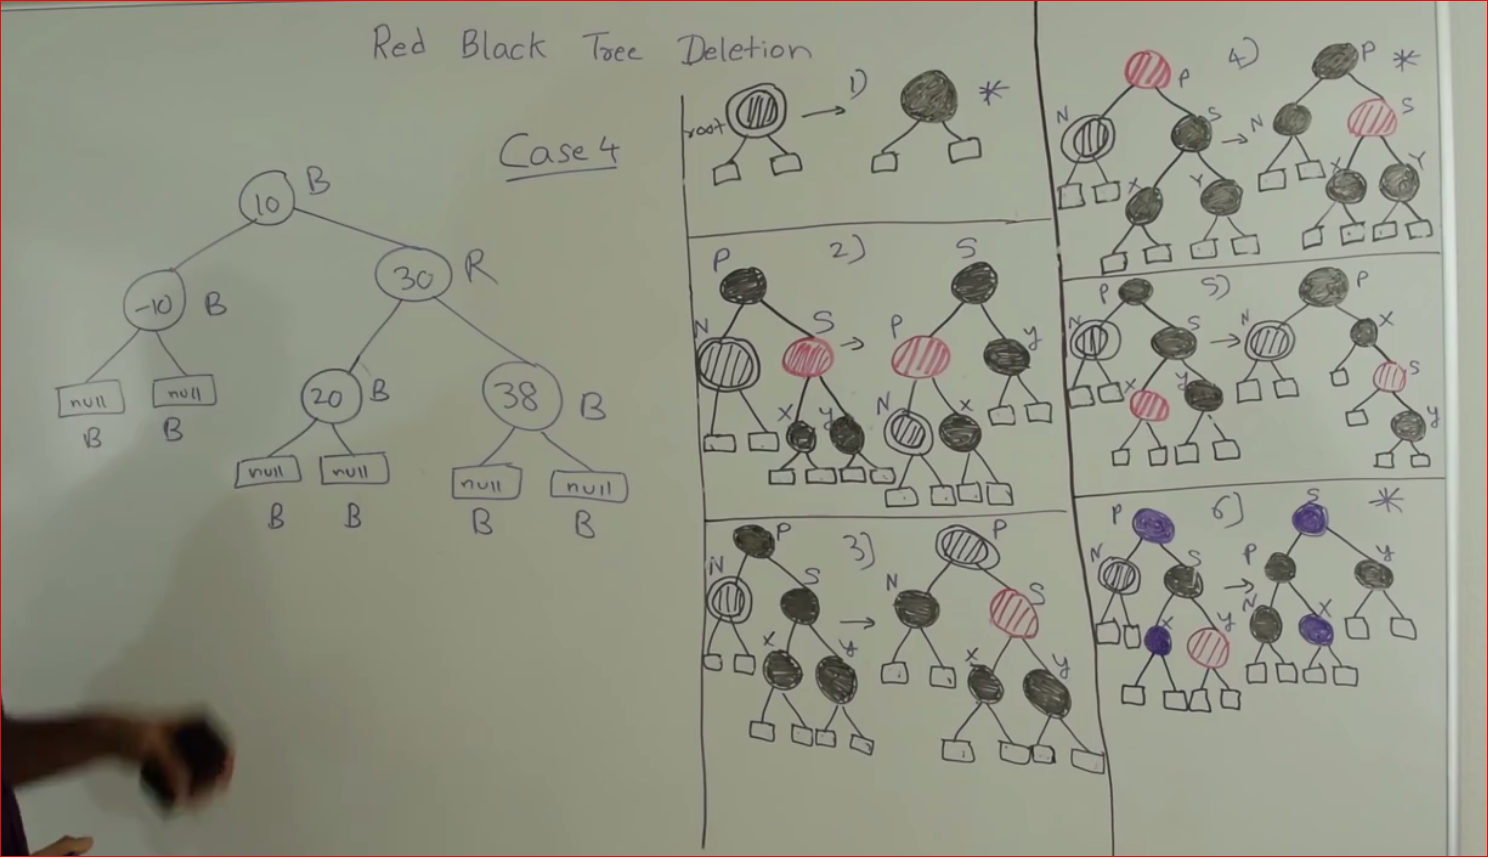 Red Black Tree Deletion
Case 4
10 B
-10 B
30 R
20 B
38 B
null null
B B
null null
B B
null null
B B
1)
root
*
2)
P
N
S
X
y
S
P
y
N
X
3)
P
N
S
X
y
P
N
S
X
y
4)
P
N
S
X
Y
P *
N
S
X
Y
5)
P
N
S
X
y
P
N
X
S
y
6)
P
N
S
X
y
S *
P
y
N
X